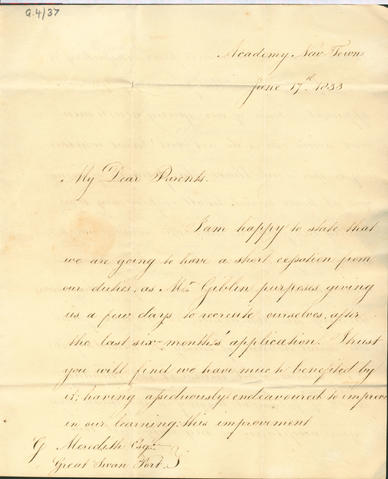 G.4/37
Academy New Town
June 17th 1833
My Dear Parents.
I am happy to state that
we are going to have a short cessation from
our duties, as Mr. Giblin purposes giving
us a few days to recreate ourselves, after
the last six months' application. I trust
you will find we have much benefited by
it; having assiduously endeavoured to improve
in our learning; this improvement
G Meredith Esqr.
Great Swan Port